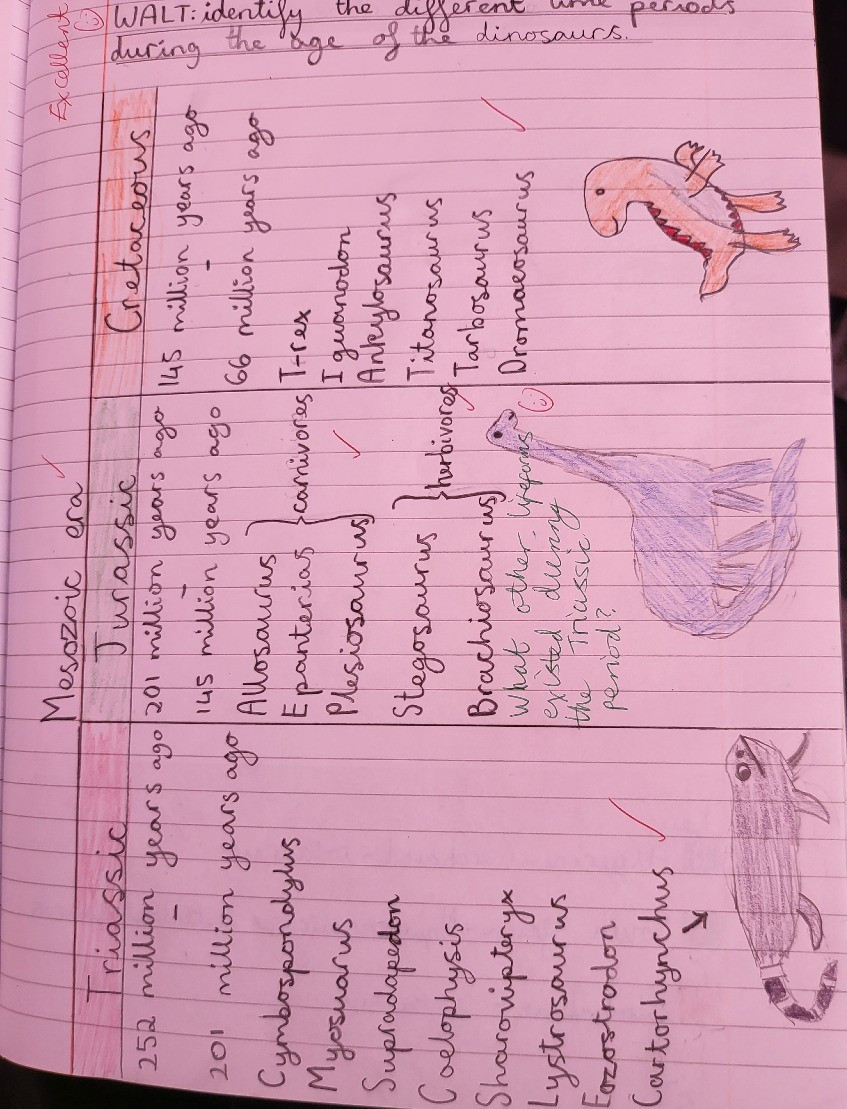 Excellent
WALT: identify the different time periods
during the age of the dinosaurs.
Mesozoic era
Triassic
252 million years ago
-
201 million years ago
Cymbospondylus
Myosuarus
Supradapedon
Coelophysis
Sharovipteryx
Lystrosaurus
Eozostrodon
Cartorhynchus
Jurassic
201 million years ago
-
145 million years ago
Allosaurus
Epanterias
Plesiosaurus
carnivores
Stegosaurus
Brachiosaurus
herbivores
What other lifeforms
existed during
the Triassic
period?
Cretaceous
145 million years ago
-
66 million years ago
T-rex
Iguanodon
Ankylosaurus
Titanosaurus
Tarbosaurus
Dromaeosaurus